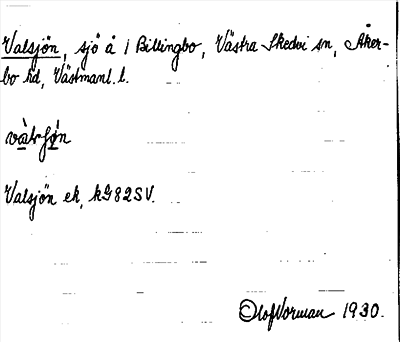 Valsjön, sjö å / Billingbo, Västra Skedvi sn, Åker-
bo hd, Västmanl. l.
Valsjön ek, kG82SV.
Olof Norman 1930.